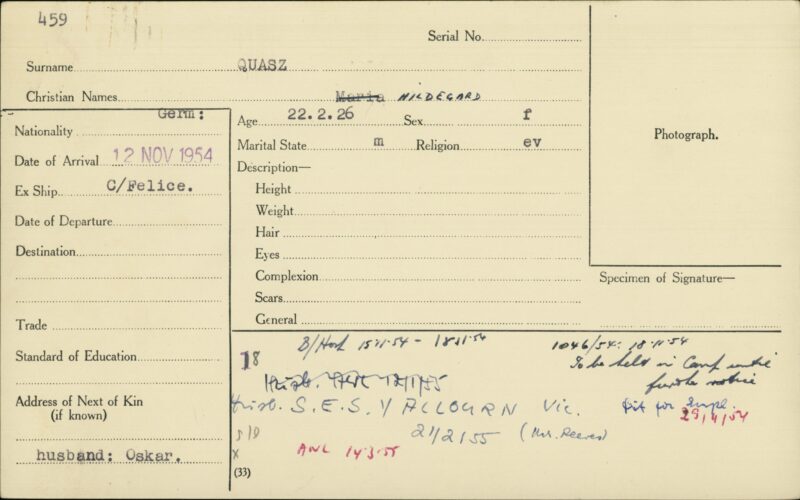 459
Serial No.
Surname QUASZ
Christian Names Maria HILDEGARD
Nationality Germ:
Date of Arrival 12 NOV 1954
Ex Ship C/Felice.
Date of Departure
Destination
Trade
Standard of Education
Address of Next of Kin
(if known)
husband: Oskar.
Age 22.2.26 Sex f
Marital State m Religion ev
Description—
Height
Weight
Hair
Eyes
Complexion
Scars
General
Photograph.
Specimen of Signature—
B/Hosp 15.11.54 - 18.11.54
1046/54: 18.11.54
To be held in Camp until
further notice
18
Husb. S.E.S. YALLOURN Vic.
fit for Empl.
29/11/54
21/2/55 (Mr. Reeves)
X
AWL 14.3.55
(33)